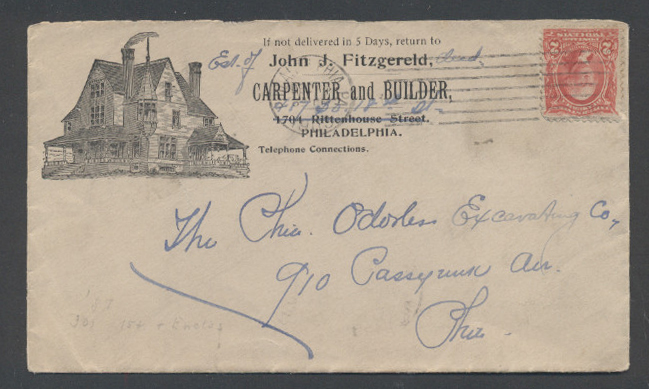 If not delivered in 5 Days, return to
Est. of John J. Fitzgereld, Decd.
CARPENTER and BUILDER,
1704 Rittenhouse Street.
PHILADELPHIA.
Telephone Connections.
2 2
The Phia. Odorless Excavating Co,
910 Passyunk Av.
Phia.